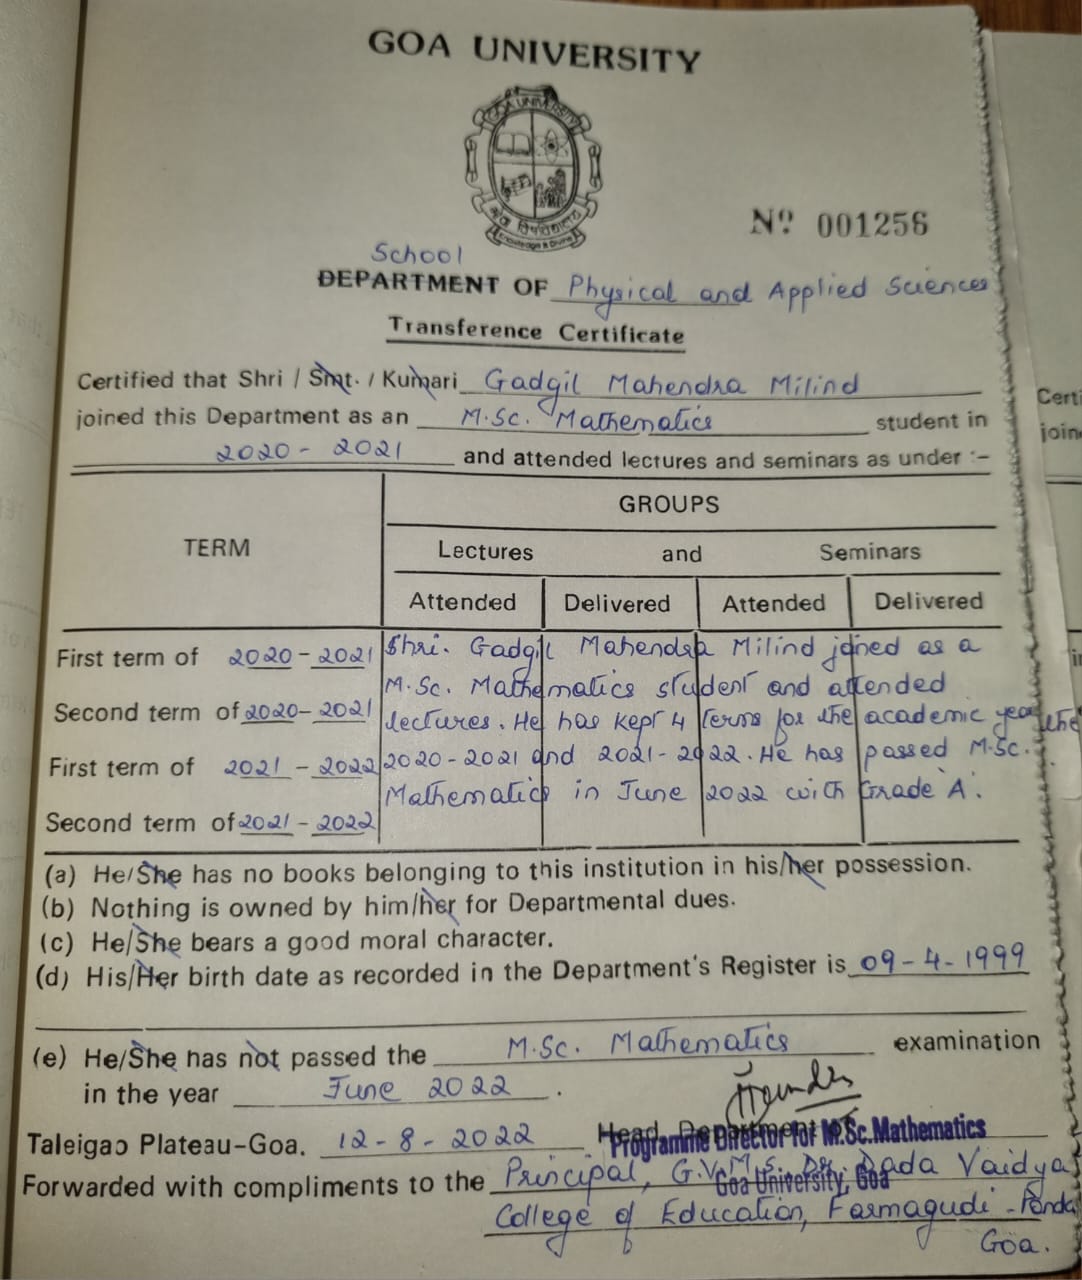 GOA UNIVERSITY
GOA UNIVERSITY
Knowledge is Divine
Nº 001256
School
DEPARTMENT OF Physical and Applied Sciences
Transference Certificate
Certified that Shri / Smt. / Kumari Gadgil Mahendra Milind
joined this Department as an M.Sc. Mathematics student in
2020 - 2021 and attended lectures and seminars as under :-
GROUPS
TERM
Lectures and Seminars
Attended Delivered Attended Delivered
First term of 2020 - 2021 Shri. Gadgil Mahendra Milind joined as a
M.Sc. Mathematics student and attended
Second term of 2020 - 2021 lectures. He has kept 4 terms for the academic year the
First term of 2021 - 2022 2020 - 2021 and 2021 - 2022. He has passed M.Sc.
Mathematics in June 2022 with Grade 'A'.
Second term of 2021 - 2022
(a) He/She has no books belonging to this institution in his/her possession.
(b) Nothing is owned by him/her for Departmental dues.
(c) He/She bears a good moral character.
(d) His/Her birth date as recorded in the Department's Register is 09 - 4 - 1999
(e) He/She has not passed the M.Sc. Mathematics examination
in the year June 2022 .
Taleigao Plateau-Goa. 12 - 8 - 2022 Head, Department of
Programme Director for M.Sc.Mathematics
Goa University, Goa
Forwarded with compliments to the Principal, G.V.M'S. Dr. Dada Vaidya
College of Education, Farmagudi - Ponda
Goa.
Certi
join